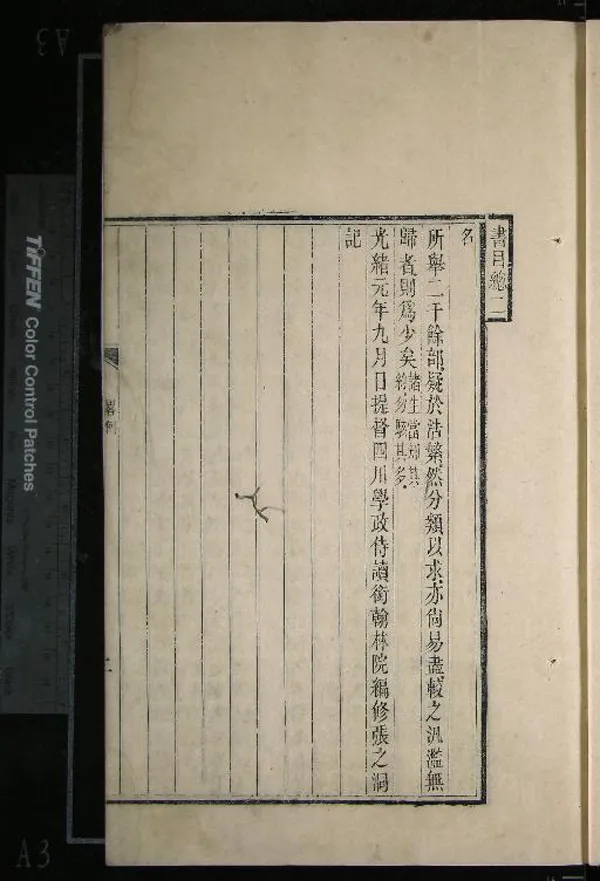 書目總二
名
所舉二千餘部疑於浩繁然分類以求亦尚易盡較之汎濫無
歸者則爲少矣諸生當知其
約勿駭其多
光緒元年九月日提督四川學政侍讀銜翰林院編修張之洞
記
畧例
二
TIFFEN Color Control Patches
A3
A3